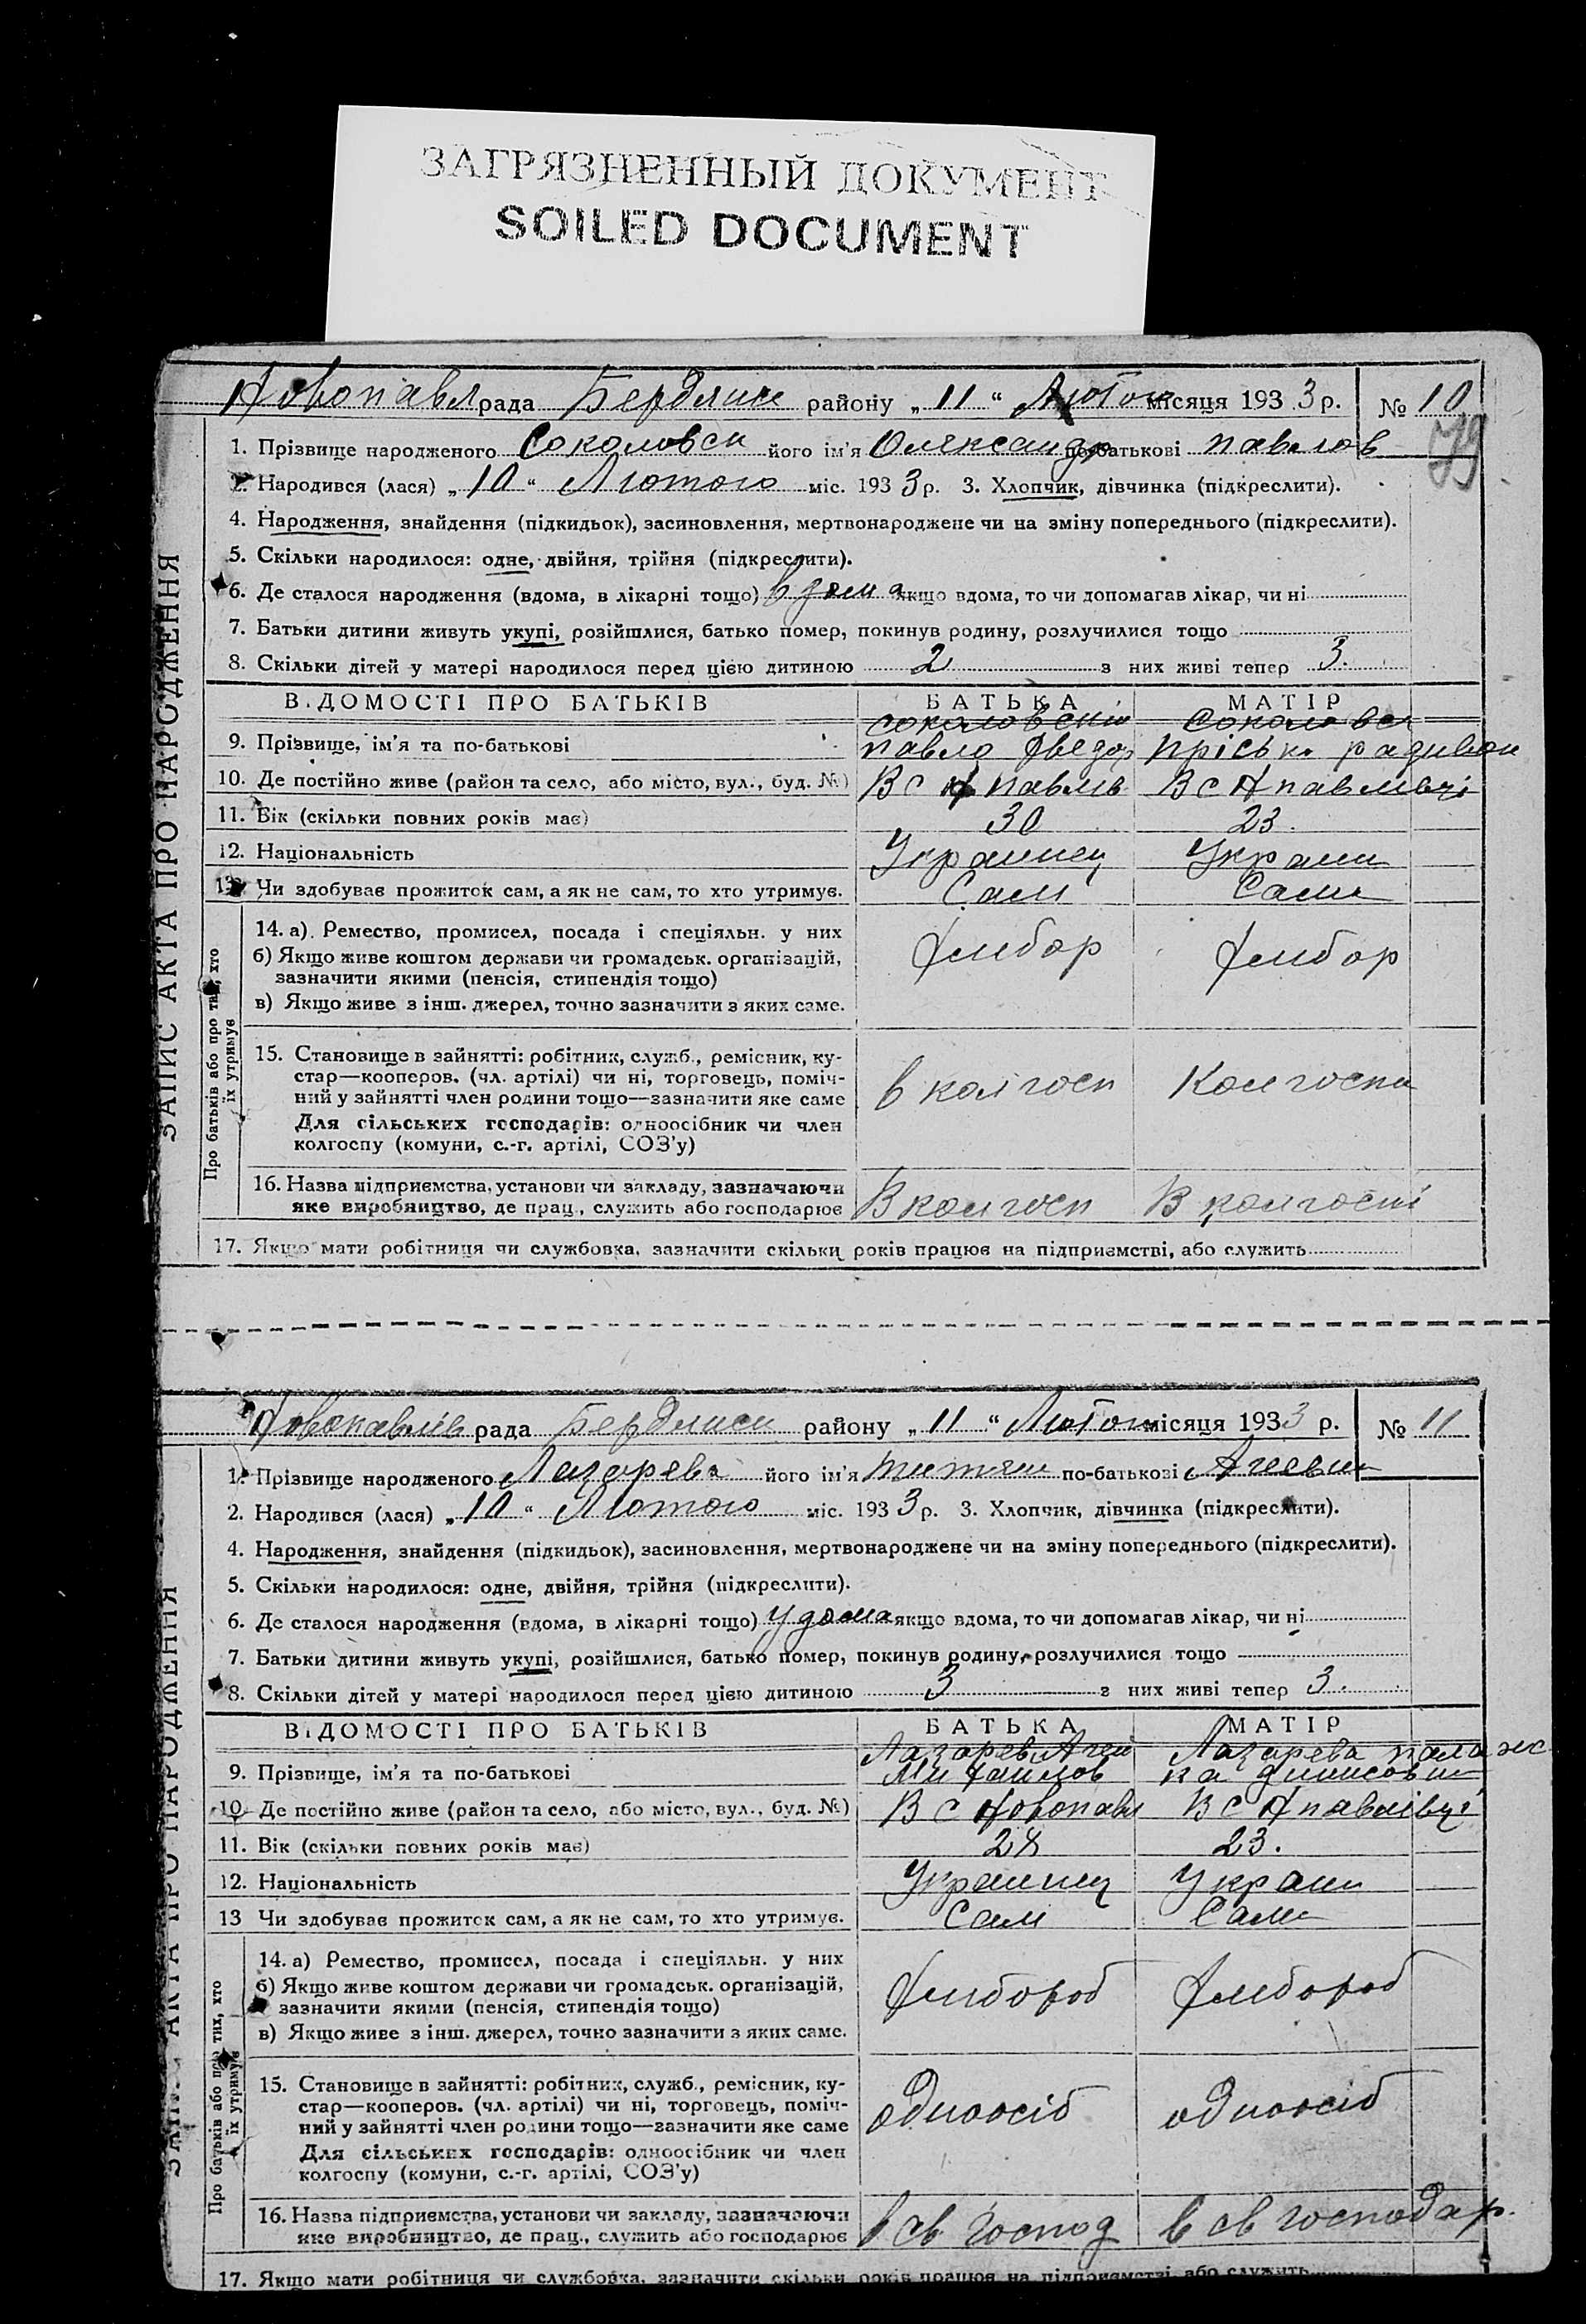 ЗАГРЯЗНЕННЫЙ ДОКУМЕНТ
SOILED DOCUMENT
Новопавл рада Бердянск району „ 11 “ Лютого місяця 1933 р. № 10
79
1. Прізвище народженого Соколовск його ім'я Олександр по-батькові Павлов
2. Народився (лася) „ 10 “ Лютого міс. 1933 р. 3. Хлопчик, дівчинка (підкреслити).
4. Народження, знайдення (підкидьок), засиновлення, мертвонароджене чи на зміну попереднього (підкреслити).
5. Скільки народилося: одне, двійня, трійня (підкреслити).
6. Де сталося народження (вдома, в лікарні тощо) вдома якщо вдома, то чи допомагав лікар, чи ні
7. Батьки дитини живуть укупі, розійшлися, батько помер, покинув родину, розлучилися тощо
8. Скільки дітей у матері народилося перед цією дитиною 2 з них живі тепер 3.
ВІДОМОСТІ ПРО БАТЬКІВ БАТЬКА МАТІР
соколовский Соколовск
9. Прізвище, ім'я та по-батькові павло Пріська
10. Де постійно живе (район та село, або місто, вул., буд. №) В с Н павлів В с Н павлівці
11. Вік (скільки повних років має) 30 23.
12. Національність Украинец Украин
13. Чи здобуває прожиток сам, а як не сам, то хто утримує. Сам Сама
ЗАПИС АКТА ПРО НАРОДЖЕННЯ
Про батьків або про тих, хто їх утримує
14. а) Ремество, промисел, посада і спеціяльн. у них Хлибор Хлибор
б) Якщо живе коштом держави чи громадськ. організацій,
зазначити якими (пенсія, стипендія тощо)
в) Якщо живе з інш. джерел, точно зазначити з яких саме.
15. Становище в зайнятті: робітник, служб., ремісник, ку-
стар—кооперов. (чл. артілі) чи ні, торговець, поміч-
ний у зайнятті член родини тощо—зазначити яке саме в колгосп Колгосп
Для сільських господарів: одноосібник чи член
колгоспу (комуни, с.-г. артілі, СОЗ'у)
16. Назва підприємства, установи чи закладу, зазначаючи
яке виробництво, де прац., служить або господарює В колгосп В колгоспі
17. Якщо мати робітниця чи службовка, зазначити скільки років працює на підприємстві, або служить
Новопавлів рада Бердянск району „ 11 “ Лютого місяця 1933 р. № 11
1. Прізвище народженого Лазарева його ім'я по-батькові
2. Народився (лася) „ 10 “ Лютого міс. 1933 р. 3. Хлопчик, дівчинка (підкреслити).
4. Народження, знайдення (підкидьок), засиновлення, мертвонароджене чи на зміну попереднього (підкреслити).
5. Скільки народилося: одне, двійня, трійня (підкреслити).
6. Де сталося народження (вдома, в лікарні тощо) удома якщо вдома, то чи допомагав лікар, чи ні
7. Батьки дитини живуть укупі, розійшлися, батько помер, покинув родину, розлучилися тощо
8. Скільки дітей у матері народилося перед цією дитиною 3 з них живі тепер 3.
ВІДОМОСТІ ПРО БАТЬКІВ БАТЬКА МАТІР
Лазарев Агей Лазарева палаж
9. Прізвище, ім'я та по-батькові Михаилов ка
10. Де постійно живе (район та село, або місто, вул., буд. №) В с Новопавл В с Н павлівці
11. Вік (скільки повних років має) 28 23.
12. Національність Украинец Украин
13 Чи здобуває прожиток сам, а як не сам, то хто утримує. Сам Сама
ЗАПИС АКТА ПРО НАРОДЖЕННЯ
Про батьків або про тих, хто їх утримує
14. а) Ремество, промисел, посада і спеціяльн. у них
б) Якщо живе коштом держави чи громадськ. організацій, Хлибороб Хлибороб
зазначити якими (пенсія, стипендія тощо)
в) Якщо живе з інш. джерел, точно зазначити з яких саме.
15. Становище в зайнятті: робітник, служб., ремісник, ку-
стар—кооперов. (чл. артілі) чи ні, торговець, поміч-
ний у зайнятті член родини тощо—зазначити яке саме одноосіб одноосіб
Для сільських господарів: одноосібник чи член
колгоспу (комуни, с.-г. артілі, СОЗ'у)
16. Назва підприємства, установи чи закладу, зазначаючи
яке виробництво, де прац., служить або господарює в св господ в св господар.
17. Якщо мати робітниця чи службовка, зазначити скільки років працює на підприємстві, або служить